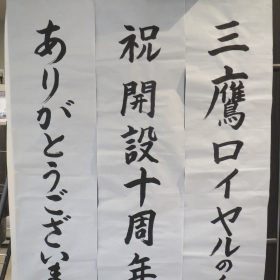 三鷹ロイヤルの
祝開設十周年
ありがとうございま